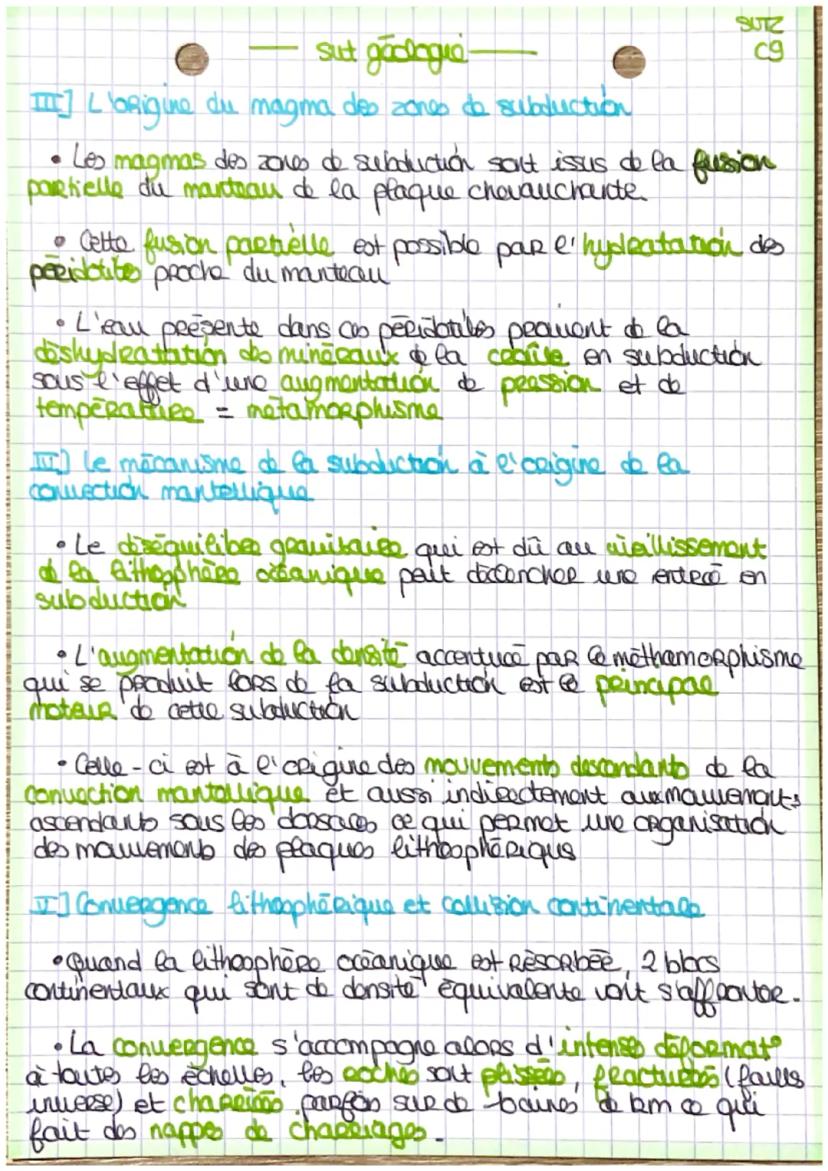 SVT2
C9
svt géologie
III] L'origine du magma des zones de subduction
• Les magmas des zones de subduction sont issus de la fusion
partielle du manteau de la plaque chevauchante.
• Cette fusion partielle est possible par l'hydratation des
péridotites proche du manteau
• L'eau présente dans ces péridotites provient de la
déshydratation des minéraux de la croûte en subduction
sous l'effet d'une augmentation de pression et de
température = métamorphisme
IV] le mécanisme de la subduction à l'origine de la
convection mantellique
• Le déséquilibre gravitaire qui est dû au vieillissement
de la lithosphère océanique peut déclencher une entrée en
subduction
• L'augmentation de la densité accentuée par le méthamorphisme
qui se produit lors de la subduction est le principal
moteur de cette subduction
• Celle-ci est à l'origine des mouvements descendants de la
convection mantellique et aussi indirectement aux mouvements
ascendants sous les dorsales ce qui permet une organisation
des mouvements des plaques lithosphériques
V] Convergence lithosphérique et collision continentale
• Quand la lithosphère océanique est RÉSORBÉE, 2 blocs
continentaux qui sont de densité équivalente vont s'affronter.
• La convergence s'accompagne alors d'intenses déformat°
à toutes les échelles, les roches sont plissées, fracturées (failles
inverse) et charriées parfois sur de baines de km ce qui
fait des nappes de charriages.